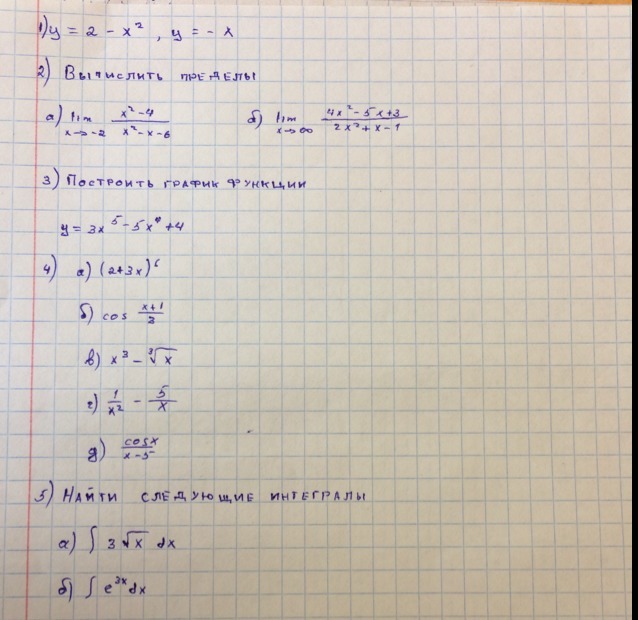 1) y = 2 - x², y = - x
2) Вычислить пределы
а) lim x→-2 (x²-4)/(x²-x-6) б) lim x→∞ (4x²-5x+3)/(2x²+x-1)
3) Построить график функции
y = 3x⁵ - 5x⁴ + 4
4) а) (2+3x)⁶
б) cos (x+1)/3
в) x³ - ∛x
г) 1/x² - 5/x
д) cosx/(x-5)
5) Найти следующие интегралы
а) ∫ 3√x dx
б) ∫ e³ˣdx